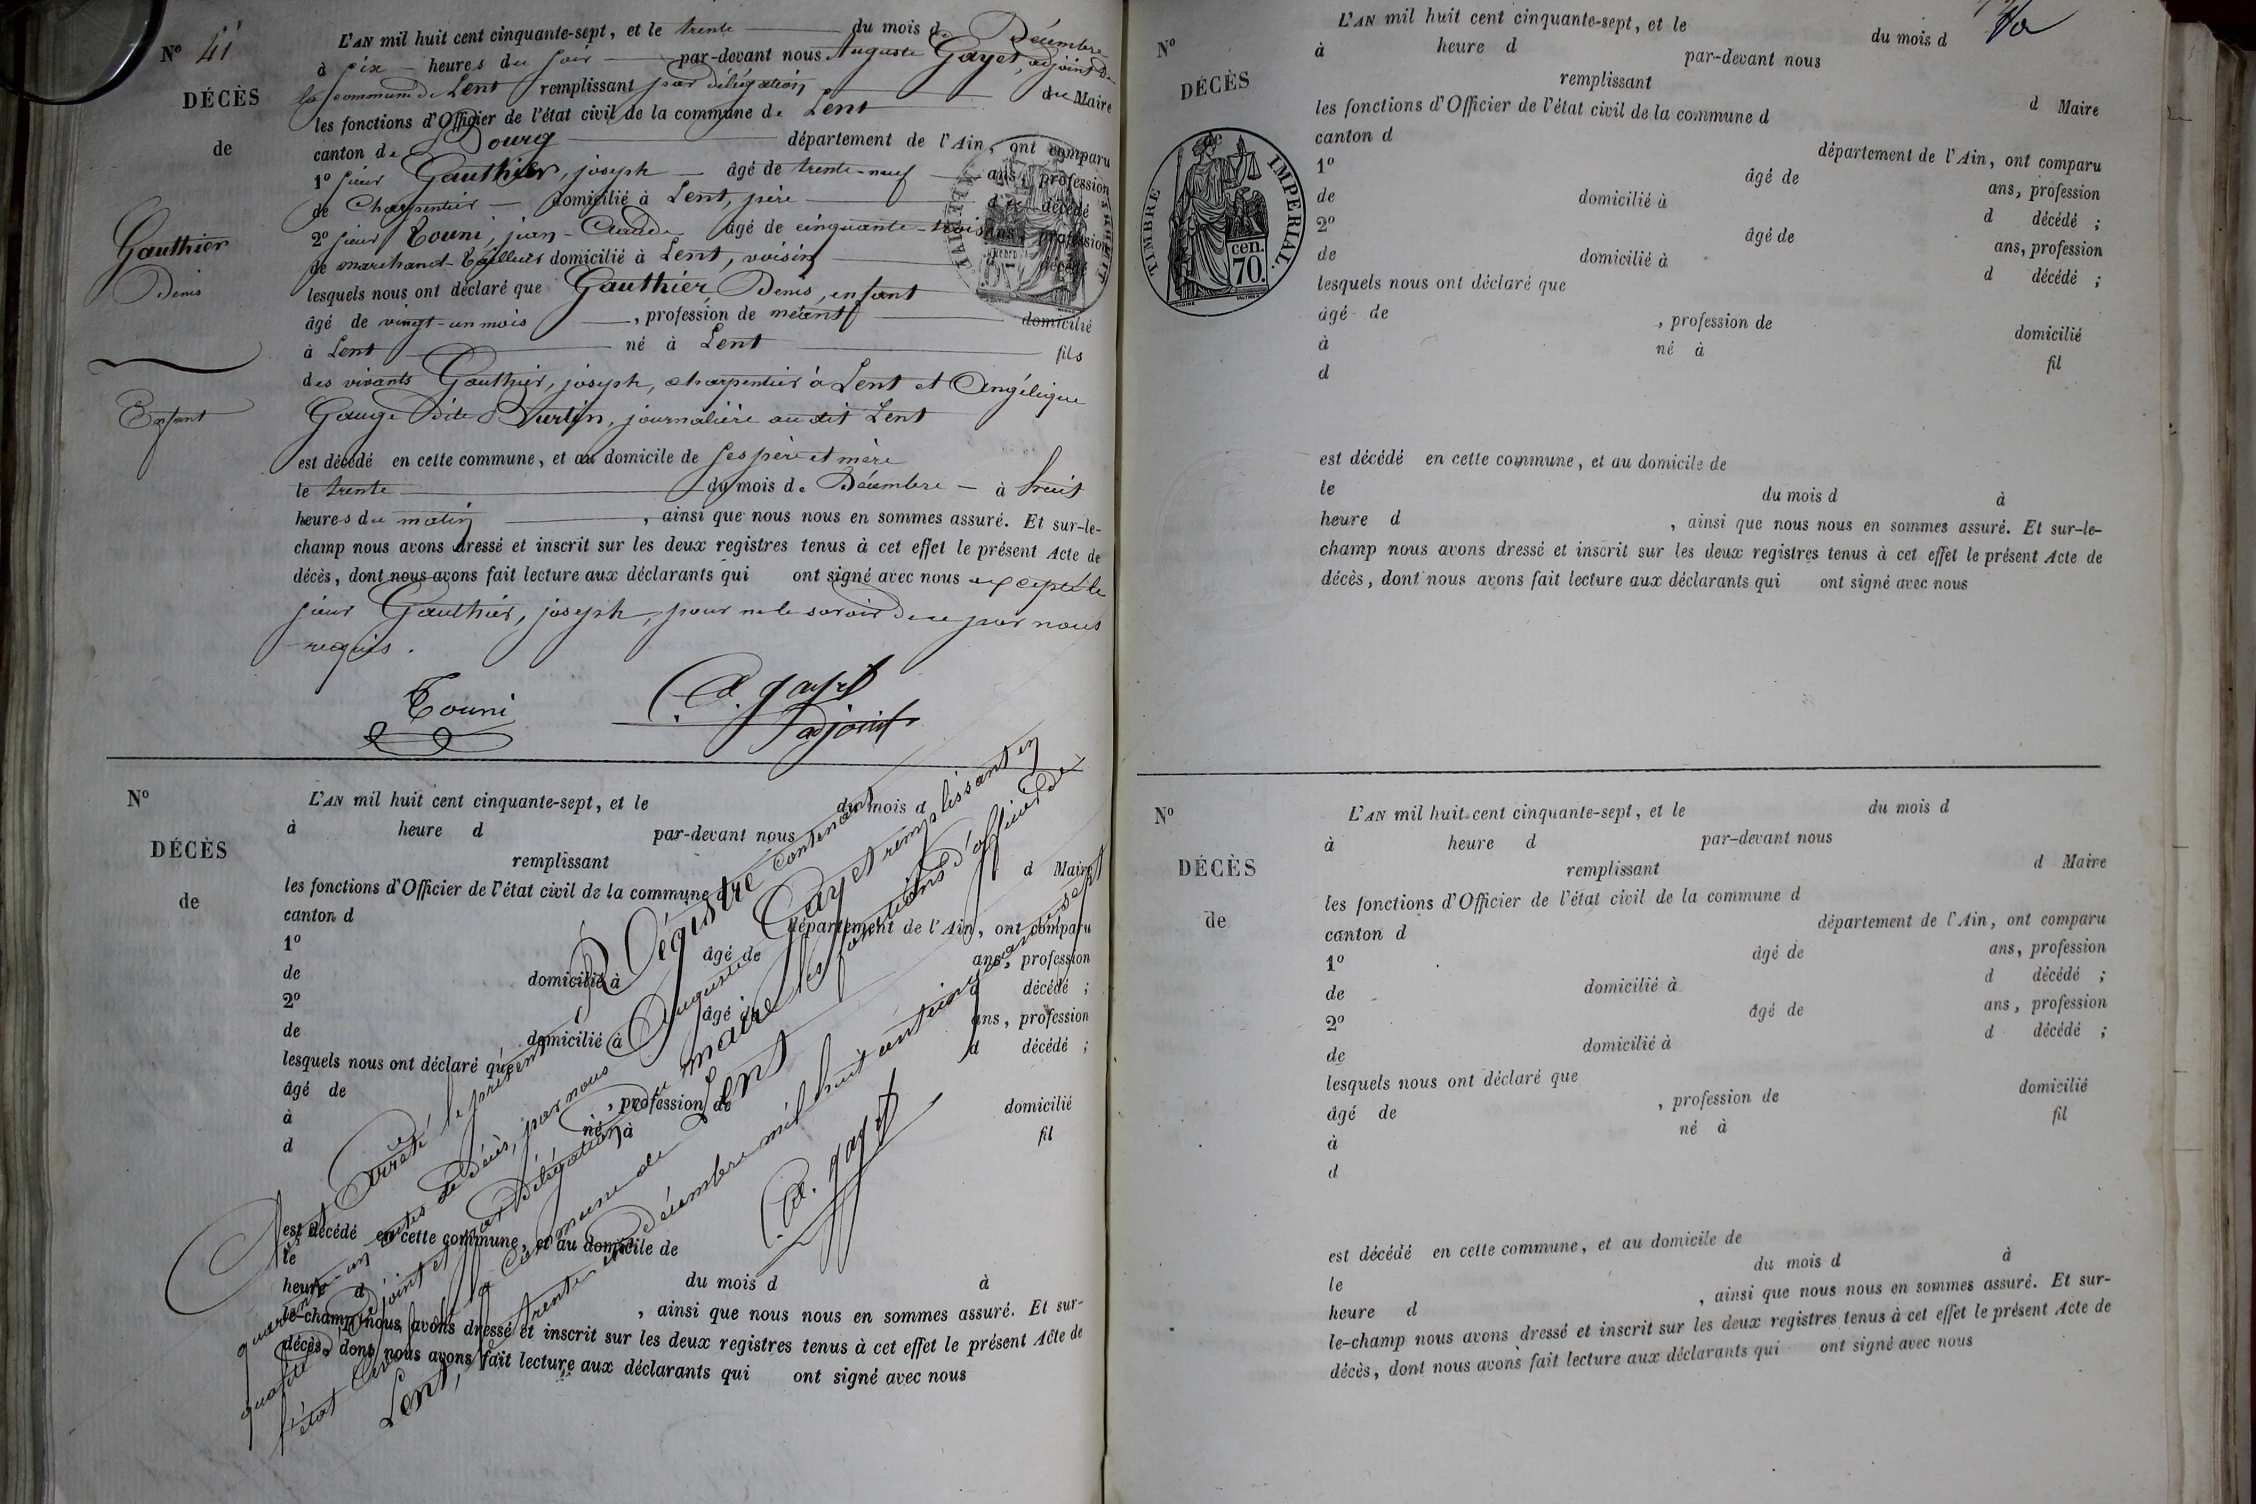 N° 41
DÉCÈS
de
Gauthier
Denis
Enfant
L'AN mil huit cent cinquante-sept, et le trente du mois de Décembre
à six heures du soir par-devant nous Auguste Gayet, adjoint de
la commune de Lent remplissant par délégation du Maire
les fonctions d'Officier de l'état civil de la commune de Lent
canton de Bourg département de l'Ain, ont comparu
1° sieur Gauthier, joseph âgé de trente-neuf ans, profession
de Charpentier domicilié à Lent, père du décédé
2° sieur Touni, jean-Claude âgé de cinquante-trois ans, profession
de marchand-tailleur domicilié à Lent, voisin d décédé
lesquels nous ont déclaré que Gauthier, Denis, enfant
âgé de vingt-un mois, profession de néant domicilié
à Lent né à Lent fils
des vivants Gauthier, joseph, charpentier à Lent et Angélique
Gauge dite Burtin, journalière au dit Lent
est décédé en cette commune, et au domicile de ses père et mère
le trente du mois de Décembre à huit
heures du matin, ainsi que nous nous en sommes assuré. Et sur-le-
champ nous avons dressé et inscrit sur les deux registres tenus à cet effet le présent Acte de
décès, dont nous avons fait lecture aux déclarants qui ont signé avec nous excepté le
sieur Gauthier, joseph, pour ne le savoir de ce par nous
requis.
Touni
A. gayet
adjoint
N°
DÉCÈS
de
L'AN mil huit cent cinquante-sept, et le du mois d
à heure d par-devant nous
remplissant d Maire
les fonctions d'Officier de l'état civil de la commune d
canton d département de l'Ain, ont comparu
1° âgé de ans, profession
de domicilié à d décédé ;
2° âgé de ans, profession
de domicilié à d décédé ;
lesquels nous ont déclaré que
âgé de , profession de domicilié
à né à fil
d
est décédé en cette commune, et au domicile de
le du mois d à
heure d , ainsi que nous nous en sommes assuré. Et sur-
le-champ nous avons dressé et inscrit sur les deux registres tenus à cet effet le présent Acte de
décès, dont nous avons fait lecture aux déclarants qui ont signé avec nous
Arrêté le présent Régistre contenant
quarante-un actes de décès, par nous Auguste Gayet remplissant en
qualité d'adjoint et par délégation du maire les fonctions d'officier de
l'état civil de la Commune de Lent
Lent, le trente-un décembre mil huit cent cinquante-sept
A. gayet
N°
DÉCÈS
TIMBRE IMPÉRIAL.
70 cen.
L'AN mil huit cent cinquante-sept, et le du mois d
à heure d par-devant nous
remplissant d Maire
les fonctions d'Officier de l'état civil de la commune d
canton d département de l'Ain, ont comparu
1° âgé de ans, profession
de domicilié à d décédé ;
2° âgé de ans, profession
de domicilié à d décédé ;
lesquels nous ont déclaré que
âgé de , profession de domicilié
à né à fil
d
est décédé en cette commune, et au domicile de
le du mois d à
heure d , ainsi que nous nous en sommes assuré. Et sur-le-
champ nous avons dressé et inscrit sur les deux registres tenus à cet effet le présent Acte de
décès, dont nous avons fait lecture aux déclarants qui ont signé avec nous
N°
DÉCÈS
de
L'AN mil huit cent cinquante-sept, et le du mois d
à heure d par-devant nous
remplissant d Maire
les fonctions d'Officier de l'état civil de la commune d
canton d département de l'Ain, ont comparu
1° âgé de ans, profession
de domicilié à d décédé ;
2° âgé de ans, profession
de domicilié à d décédé ;
lesquels nous ont déclaré que
âgé de , profession de domicilié
à né à fil
d
est décédé en cette commune, et au domicile de
le du mois d à
heure d , ainsi que nous nous en sommes assuré. Et sur-
le-champ nous avons dressé et inscrit sur les deux registres tenus à cet effet le présent Acte de
décès, dont nous avons fait lecture aux déclarants qui ont signé avec nous